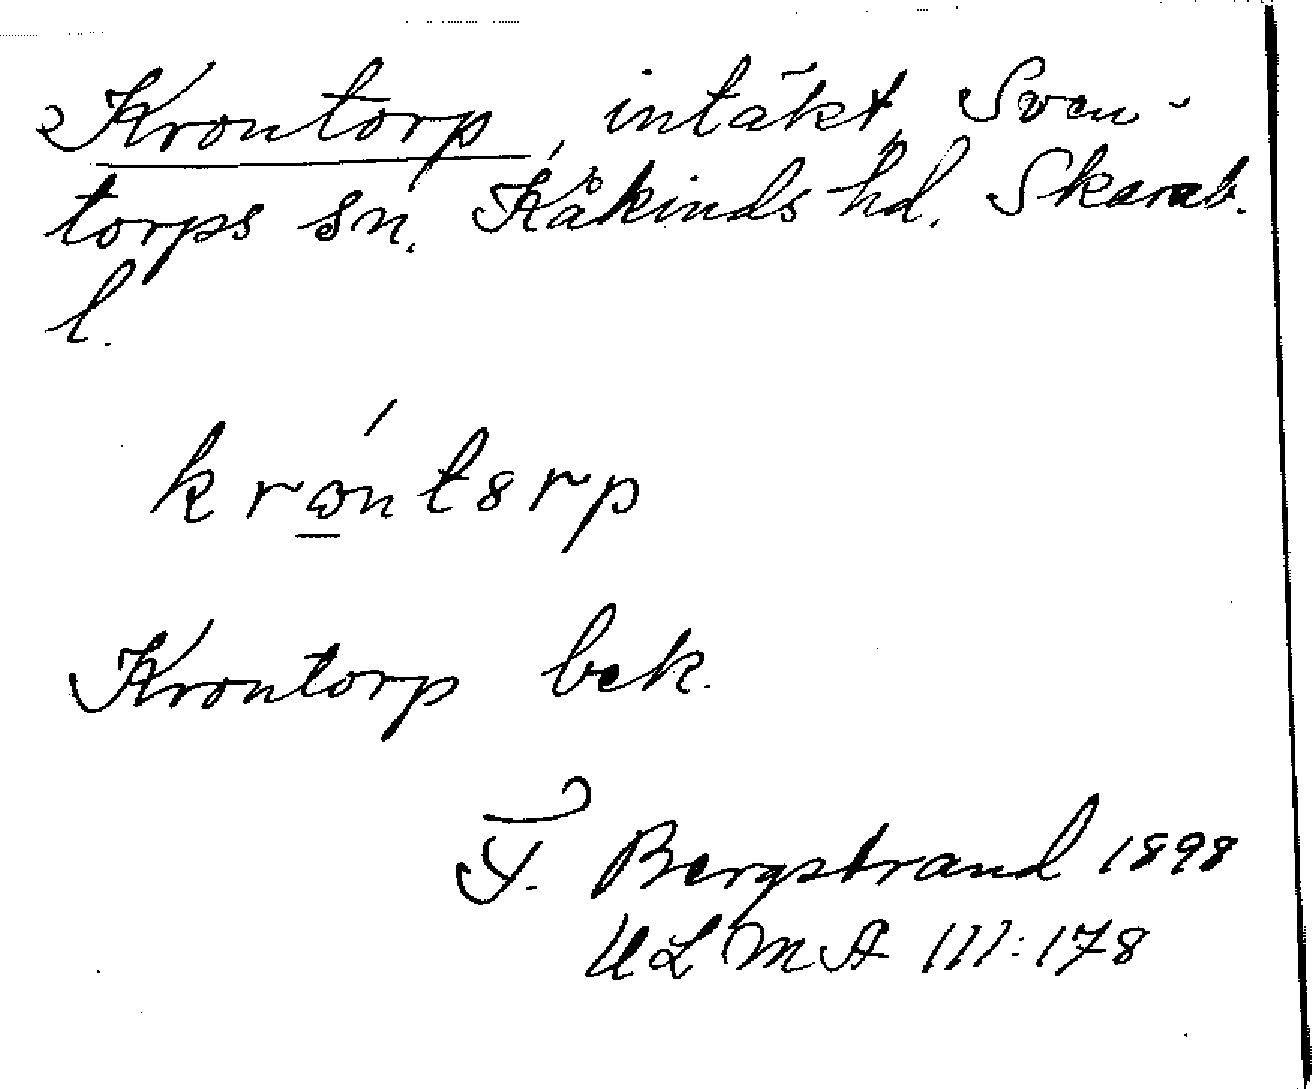 Krontorp, intäkt, Sven-
torps sn. Kåkinds hd. Skarab.
l.
krώntɤrp
Krontorp bek.
T. Bergstrand 1898
ULMA 111:178